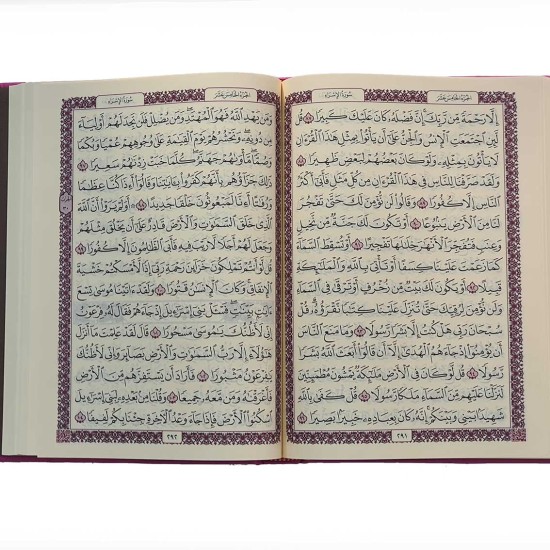 الجزء الخامس عشر سورة الإسراء
إِلَّا رَحْمَةً مِّن رَّبِّكَ ۚ إِنَّ فَضْلَهُۥ كَانَ عَلَيْكَ كَبِيرًا ٨٧ قُل
لَّئِنِ ٱجْتَمَعَتِ ٱلْإِنسُ وَٱلْجِنُّ عَلَىٰٓ أَن يَأْتُوا۟ بِمِثْلِ هَٰذَا ٱلْقُرْءَانِ
لَا يَأْتُونَ بِمِثْلِهِۦ وَلَوْ كَانَ بَعْضُهُمْ لِبَعْضٍ ظَهِيرًا ٨٨
وَلَقَدْ صَرَّفْنَا لِلنَّاسِ فِى هَٰذَا ٱلْقُرْءَانِ مِن كُلِّ مَثَلٍ فَأَبَىٰٓ أَكْثَرُ
ٱلنَّاسِ إِلَّا كُفُورًا ٨٩ وَقَالُوا۟ لَن نُّؤْمِنَ لَكَ حَتَّىٰ تَفْجُرَ
لَنَا مِنَ ٱلْأَرْضِ يَنۢبُوعًا ٩٠ أَوْ تَكُونَ لَكَ جَنَّةٌ مِّن نَّخِيلٍ
وَعِنَبٍ فَتُفَجِّرَ ٱلْأَنْهَٰرَ خِلَٰلَهَا تَفْجِيرًا ٩١ أَوْ تُسْقِطَ ٱلسَّمَآءَ
كَمَا زَعَمْتَ عَلَيْنَا كِسَفًا أَوْ تَأْتِىَ بِٱللَّهِ وَٱلْمَلَٰٓئِكَةِ
قَبِيلًا ٩٢ أَوْ يَكُونَ لَكَ بَيْتٌ مِّن زُخْرُفٍ أَوْ تَرْقَىٰ فِى ٱلسَّمَآءِ
وَلَن نُّؤْمِنَ لِرُقِيِّكَ حَتَّىٰ تُنَزِّلَ عَلَيْنَا كِتَٰبًا نَّقْرَؤُهُۥ ۗ قُلْ
سُبْحَانَ رَبِّى هَلْ كُنتُ إِلَّا بَشَرًا رَّسُولًا ٩٣ وَمَا مَنَعَ ٱلنَّاسَ
أَن يُؤْمِنُوٓا۟ إِذْ جَآءَهُمُ ٱلْهُدَىٰٓ إِلَّآ أَن قَالُوٓا۟ أَبَعَثَ ٱللَّهُ بَشَرًا
رَّسُولًا ٩٤ قُل لَّوْ كَانَ فِى ٱلْأَرْضِ مَلَٰٓئِكَةٌ يَمْشُونَ مُطْمَئِنِّينَ
لَنَزَّلْنَا عَلَيْهِم مِّنَ ٱلسَّمَآءِ مَلَكًا رَّسُولًا ٩٥ قُلْ كَفَىٰ بِٱللَّهِ
شَهِيدًۢا بَيْنِى وَبَيْنَكُمْ ۚ إِنَّهُۥ كَانَ بِعِبَادِهِۦ خَبِيرًۢا بَصِيرًا ٩٦
٢٩١
الجزء الخامس عشر سورة الإسراء
وَمَن يَهْدِ ٱللَّهُ فَهُوَ ٱلْمُهْتَدِ ۖ وَمَن يُضْلِلْ فَلَن تَجِدَ لَهُمْ أَوْلِيَآءَ
مِن دُونِهِۦ ۖ وَنَحْشُرُهُمْ يَوْمَ ٱلْقِيَٰمَةِ عَلَىٰ وُجُوهِهِمْ عُمْيًا وَبُكْمًا
وَصُمًّا ۖ مَّأْوَىٰهُمْ جَهَنَّمُ ۖ كُلَّمَا خَبَتْ زِدْنَٰهُمْ سَعِيرًا ٩٧
ذَٰلِكَ جَزَآؤُهُم بِأَنَّهُمْ كَفَرُوا۟ بِـَٔايَٰتِنَا وَقَالُوٓا۟ أَءِذَا كُنَّا عِظَٰمًا
وَرُفَٰتًا أَءِنَّا لَمَبْعُوثُونَ خَلْقًا جَدِيدًا ٩٨ أَوَلَمْ يَرَوْا۟ أَنَّ ٱللَّهَ
ٱلَّذِى خَلَقَ ٱلسَّمَٰوَٰتِ وَٱلْأَرْضَ قَادِرٌ عَلَىٰٓ أَن يَخْلُقَ مِثْلَهُمْ
وَجَعَلَ لَهُمْ أَجَلًا لَّا رَيْبَ فِيهِ فَأَبَى ٱلظَّٰلِمُونَ إِلَّا كُفُورًا ٩٩
قُل لَّوْ أَنتُمْ تَمْلِكُونَ خَزَآئِنَ رَحْمَةِ رَبِّىٓ إِذًا لَّأَمْسَكْتُمْ خَشْيَةَ
ٱلْإِنفَاقِ ۚ وَكَانَ ٱلْإِنسَٰنُ قَتُورًا ١٠٠ وَلَقَدْ ءَاتَيْنَا مُوسَىٰ تِسْعَ
ءَايَٰتٍۭ بَيِّنَٰتٍ ۖ فَسْـَٔلْ بَنِىٓ إِسْرَٰٓءِيلَ إِذْ جَآءَهُمْ فَقَالَ لَهُۥ فِرْعَوْنُ
إِنِّى لَأَظُنُّكَ يَٰمُوسَىٰ مَسْحُورًا ١٠١ قَالَ لَقَدْ عَلِمْتَ مَآ أَنزَلَ
هَٰٓؤُلَآءِ إِلَّا رَبُّ ٱلسَّمَٰوَٰتِ وَٱلْأَرْضِ بَصَآئِرَ وَإِنِّى لَأَظُنُّكَ
يَٰفِرْعَوْنُ مَثْبُورًا ١٠٢ فَأَرَادَ أَن يَسْتَفِزَّهُم مِّنَ ٱلْأَرْضِ
فَأَغْرَقْنَٰهُ وَمَن مَّعَهُۥ جَمِيعًا ١٠٣ وَقُلْنَا مِنۢ بَعْدِهِۦ لِبَنِىٓ إِسْرَٰٓءِيلَ
ٱسْكُنُوا۟ ٱلْأَرْضَ فَإِذَا جَآءَ وَعْدُ ٱلْـَٔاخِرَةِ جِئْنَا بِكُمْ لَفِيفًا ١٠٤
٢٩٢